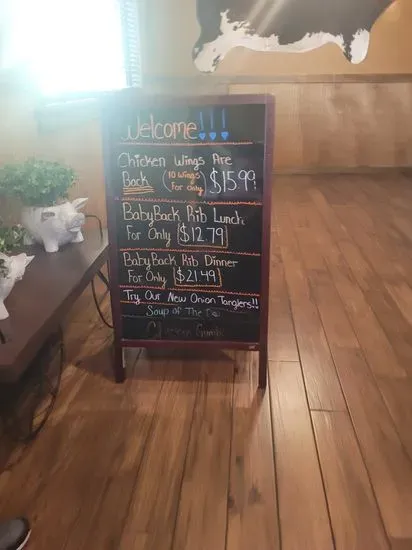 Welcome!!!
Chicken Wings Are
Back (10 Wings For only) $15.99
BabyBack Rib Lunch
For Only $12.79
BabyBack Rib Dinner
For Only $21.49
Try Our New Onion Tanglers!!
Soup of The Day
Chicken Gumbo